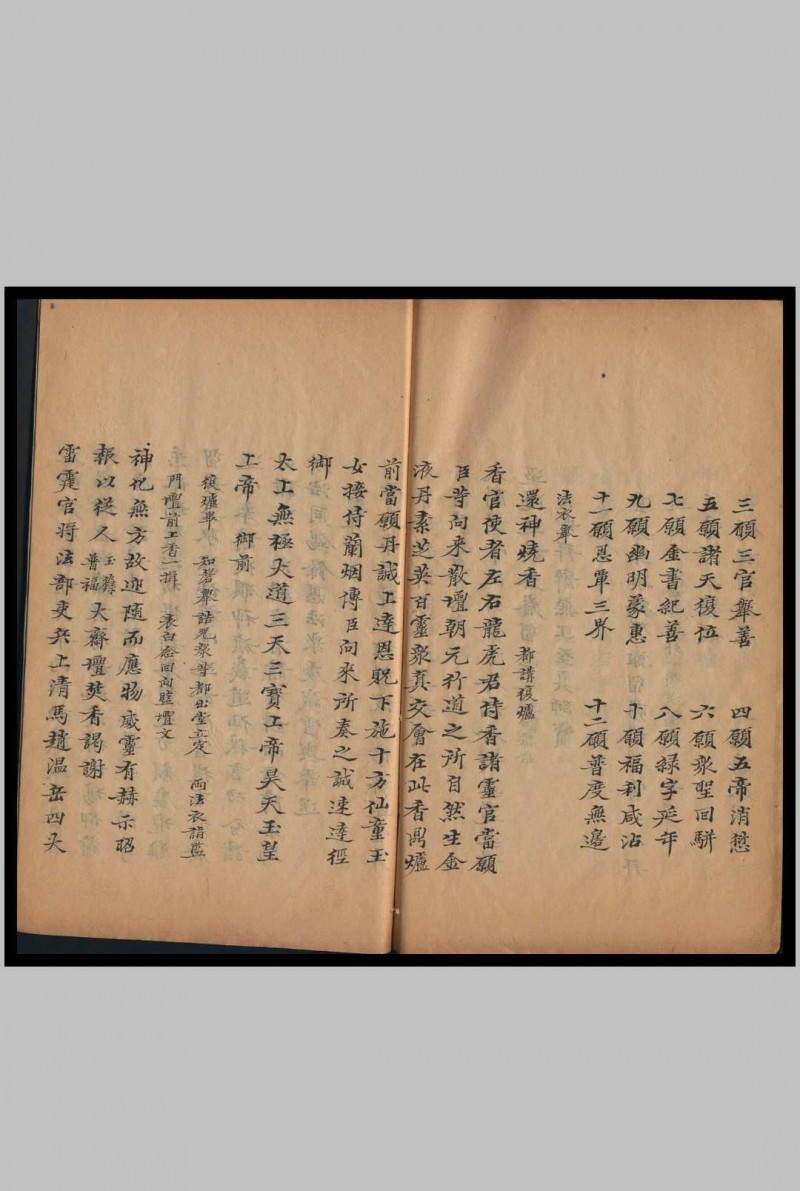 三願三官舉善　四願五帝消愆
五願諸天復位　六願衆聖回駢
七願金書紀善　八願錄字延年
九願幽明蒙惠　十願福利咸沾
十一願恩覃三界　十二願普度無邊
法衣舉
還神燒香　都講復爐
香官使者左右龍虎君侍香諸靈官當願
臣等向來散壇朝元行道之所自然生金
液丹素芝英百靈衆真交會在此香爐
前當願丹誠上達恩貺下施十方仙童玉
女接侍蘭烟傳臣向來所奏之誠速達徑
御
太上無極大道三天三寶上帝昊天玉皇
上帝　御前
復爐畢　知磬舉誥　衆等都出堂立定　兩法衣諸
門壇前上香一揖　表白念回向　壇文
神化無方故迎隨而應物威靈有赫示昭
報以從人　玉籙　普福　大齋壇焚香謁謝
雷霆官將法部吏兵上清馬趙温岳四大